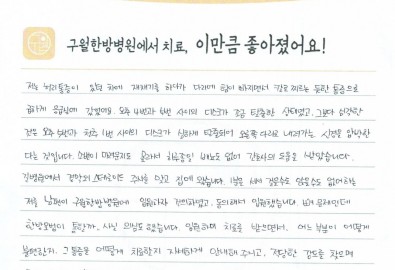 구월한방병원에서 치료, 이만큼 좋아졌어요!
저는 허리통증이 있던 차에 재채기를 하다가 다리에 힘이 빠지면서 칼로 찌르는 듯한 통증으로
급하게 응급실에 갔었어요. 요추 4번과 5번 사이의 디스크가 조금 탈출한 상태였고, 그보다 심각한
것은 요추 5번과 천추 1번 사이의 디스크가 심하게 탈출되어 오른쪽 다리로 내려가는 신경을 압박한
다는 것입니다. 소변이 마려운지도 몰라서 하루종일 배뇨도 없이 간호사의 도움을 받았습니다.
병원에서 경막외 스테로이드 주사를 맞고 집에 왔습니다. 걸을 수도 앉을 수도 없어하는
저를 남편이 구월한방병원에 입원하자 권의하였고, 동의해서 입원했습니다. 뼈 문제인데
한방요법이 통할까, 사실 의심도 했습니다. 입원하며 치료를 받으면서, 어느 부분이 어떻게
불편한지, 그 통증을 어떻게 치료할지 자세하게 안내해 주시고, 적당한 강도를 찾으며